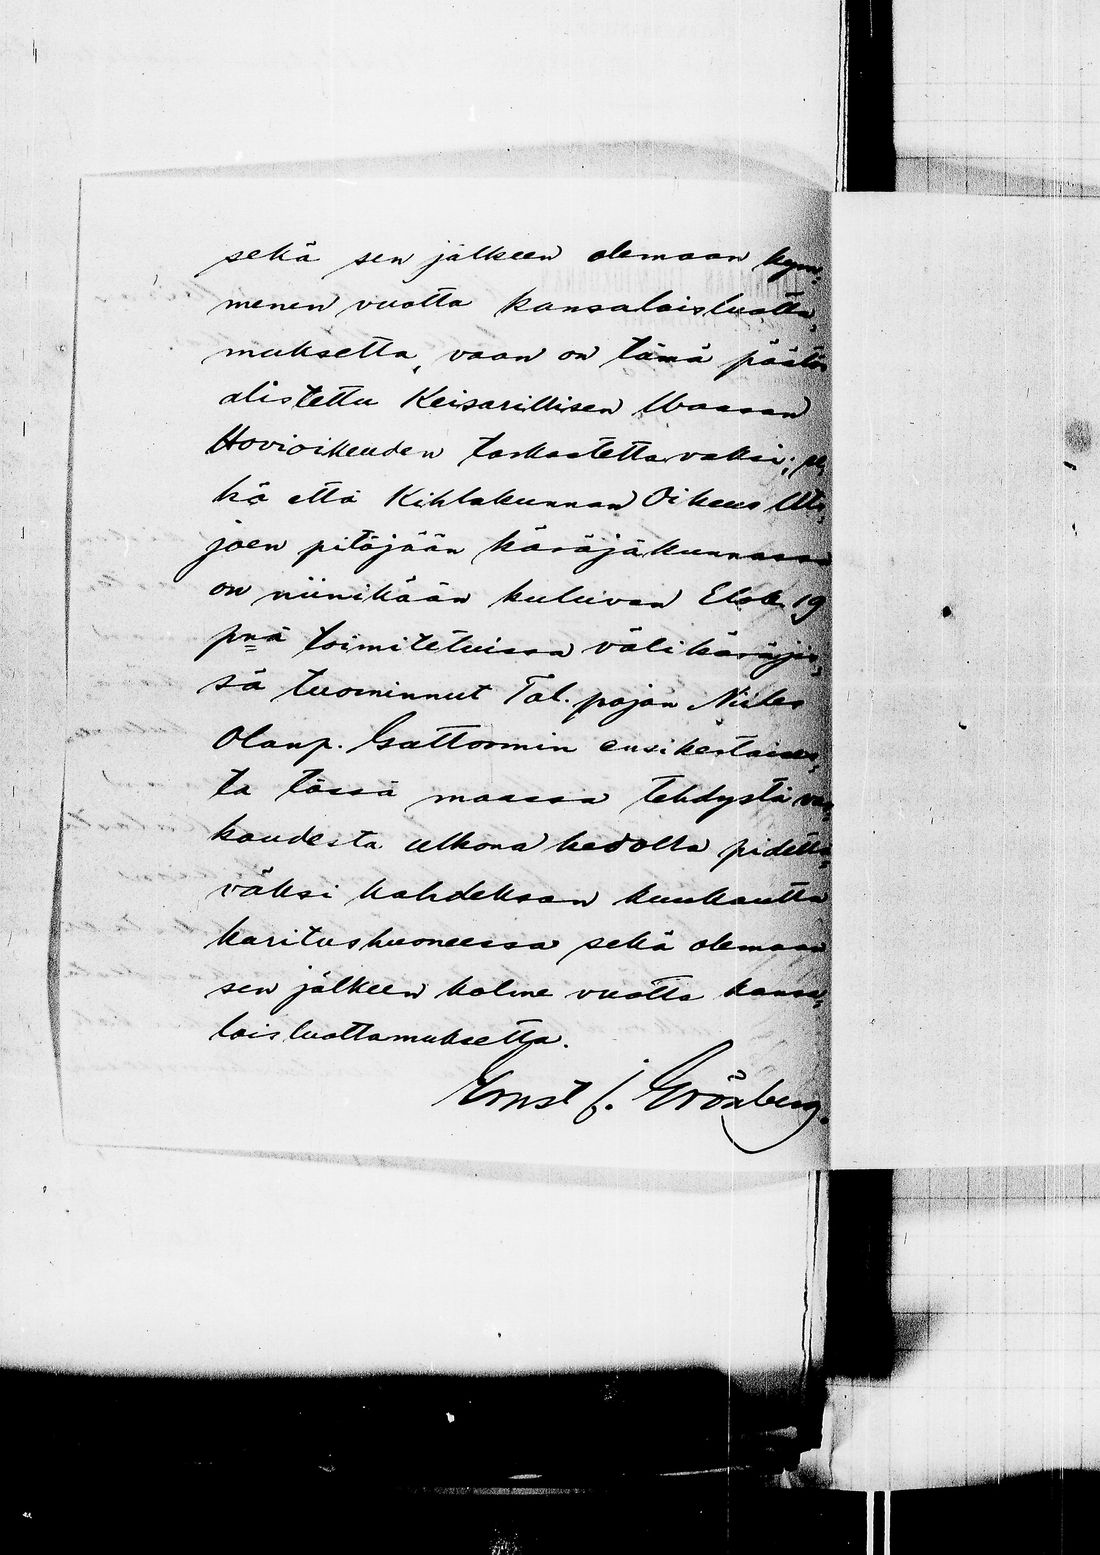 sekä sen jälkeen olemaan kym-
menen vuotta kansalaisluotta-
muksetta, vaan on tämä päätös
alistettu Keisarillisen Waasan
Hovioikeuden tarkastettavaksi; se-
kä että Kihlakunnan Oikeus Uts-
joen pitäjään käräjäkunnassa
on niinikään kuluvan Elok. 19
pnä toimitetuissa välikäräjis-
sä tuominnut Tal. pojan Niiles
Olanp. Guttormin ensikertaises-
ta tässä maassa tehdystä var-
kaudesta ulkona kedolla pidettä-
väksi kahdeksan kuukautta
kuritushuoneessa sekä olemaan
sen jälkeen kolme vuotta kansa-
laisluottamuksetta.
Ernst J. Grönberg.